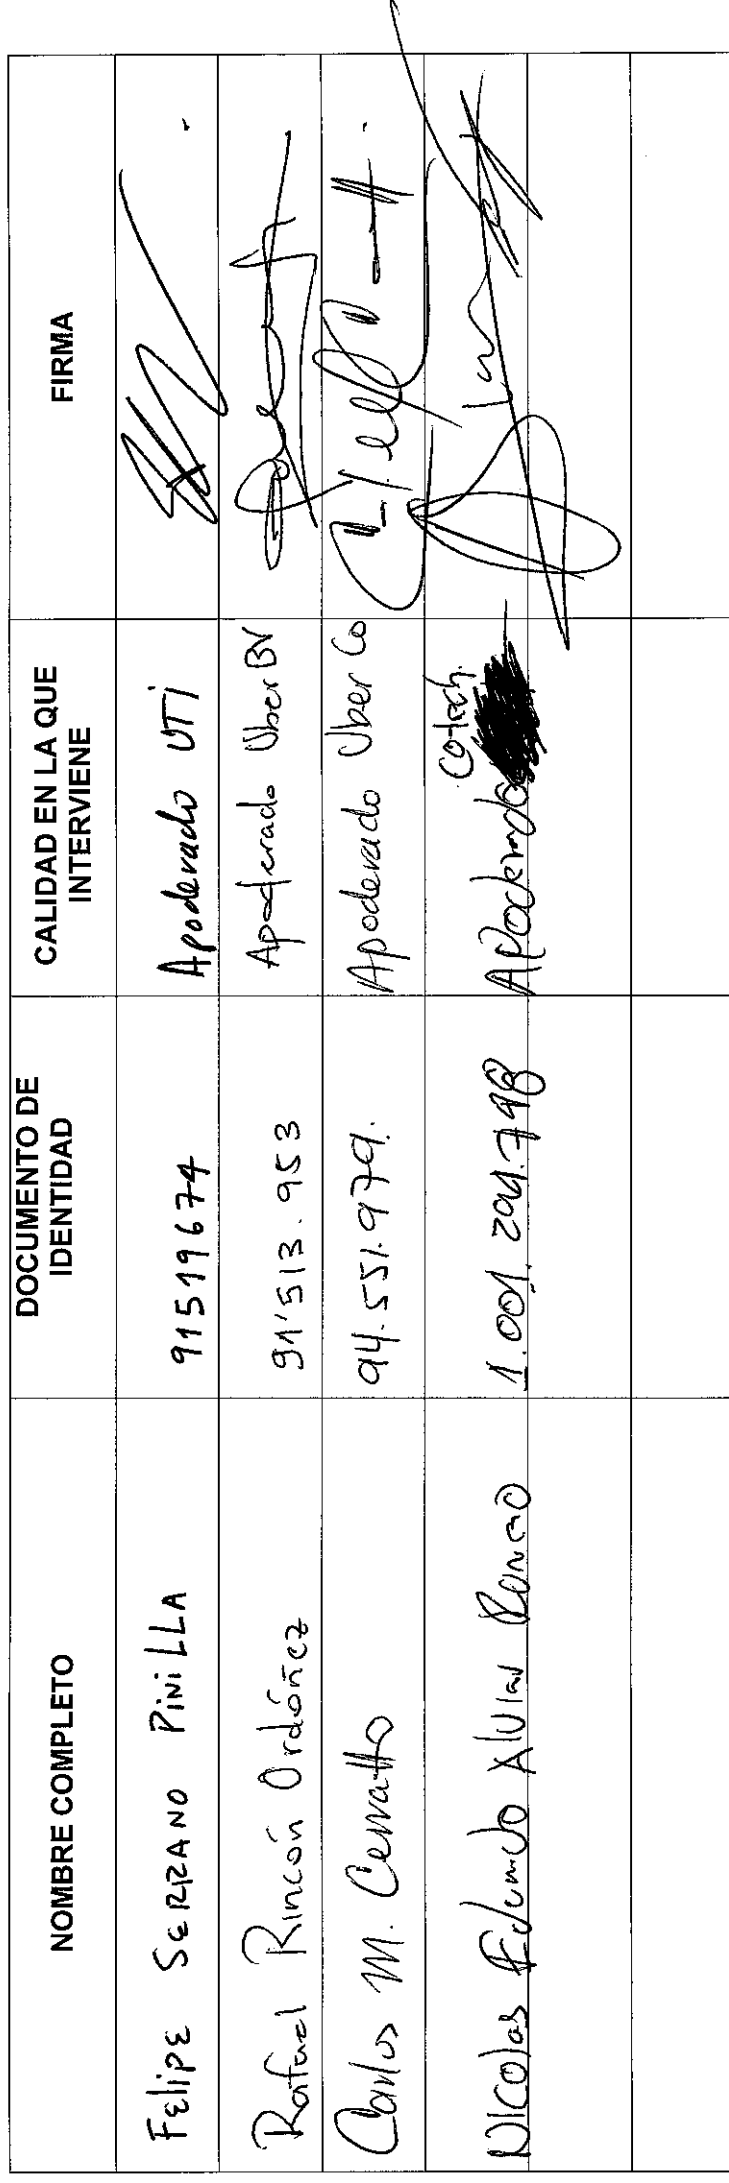 NOMBRE COMPLETO
DOCUMENTO DE
IDENTIDAD
CALIDAD EN LA QUE
INTERVIENE
FIRMA
FELIPE SERRANO PINILLA
91519674
Apoderado UTI
Rafael Rincón Ordóñez
91'513.953
Apoderado Uber BV
Carlos M. Cerratto
94.551.979.
Apoderado Uber Co
Nicolas Eduardo Alviar
1.001.294.798
Apoderado
Cotech.